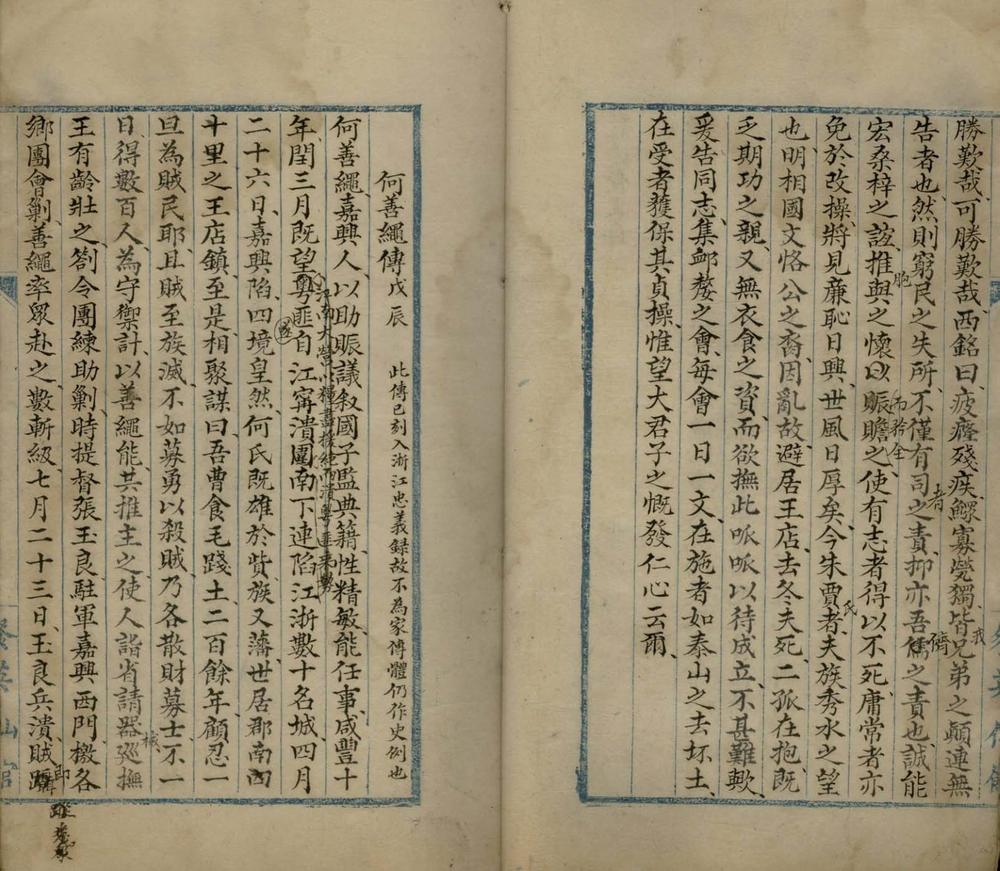 勝歎哉、可勝歎哉、西銘曰、疲癃殘疾、鰥寡煢獨、皆兄弟之顛連無
我
告者也、然則窮民之失所、不僅有司之責、抑亦吾儒之責也、誠能
者
儕
宏桑梓之誼、推與之懷、以賑贍之、使有志者得以不死、庸常者亦
胞
而矜全
免於改操、將見廉恥日興、世風日厚矣、今朱賈者、夫族秀水之望
氏
也、明相國文恪公之裔、因亂故、避居王店、去冬夫死、二孤在抱、既
乏期功之親、又無衣食之資、而欲撫此呱呱以待成立、不甚難歟、
爰告同志、集卹嫠之會、每會一日一文、在施者如泰山之去坏土、
在受者獲保其貞操、惟望大君子之慨發仁心云爾、
何善繩傳戊辰 此傳已刻入浙江忠義錄故不為家傳體仍作史例也
何善繩、嘉興人、以助賑議叙國子監典籍、性精敏、能任事、咸豐十
年、閏三月既望、粵匪自江寧潰圍南下、連陷江浙數十名城、四月
江南大營以糧盡援絕而潰粵匪乘勢
二十六日、嘉興陷、四境皇然、何氏既雄於貲、族又蕃、世居郡南四
十里之王店鎮、至是相聚謀曰、吾曹食毛踐土二百餘年、顧忍一
旦為賊民耶、且賊至族滅、不如募勇以殺賊、乃各散財募士、不一
日、得數百人、為守禦計、以善繩能、共推主之、使人詣省請器、巡撫
械
王有齡壯之、劄令團練助剿、時提督張玉良駐軍嘉興西門、檄各
鄉團會剿、善繩率眾赴之、數斬級、七月二十三日、玉良兵潰、賊躡
即